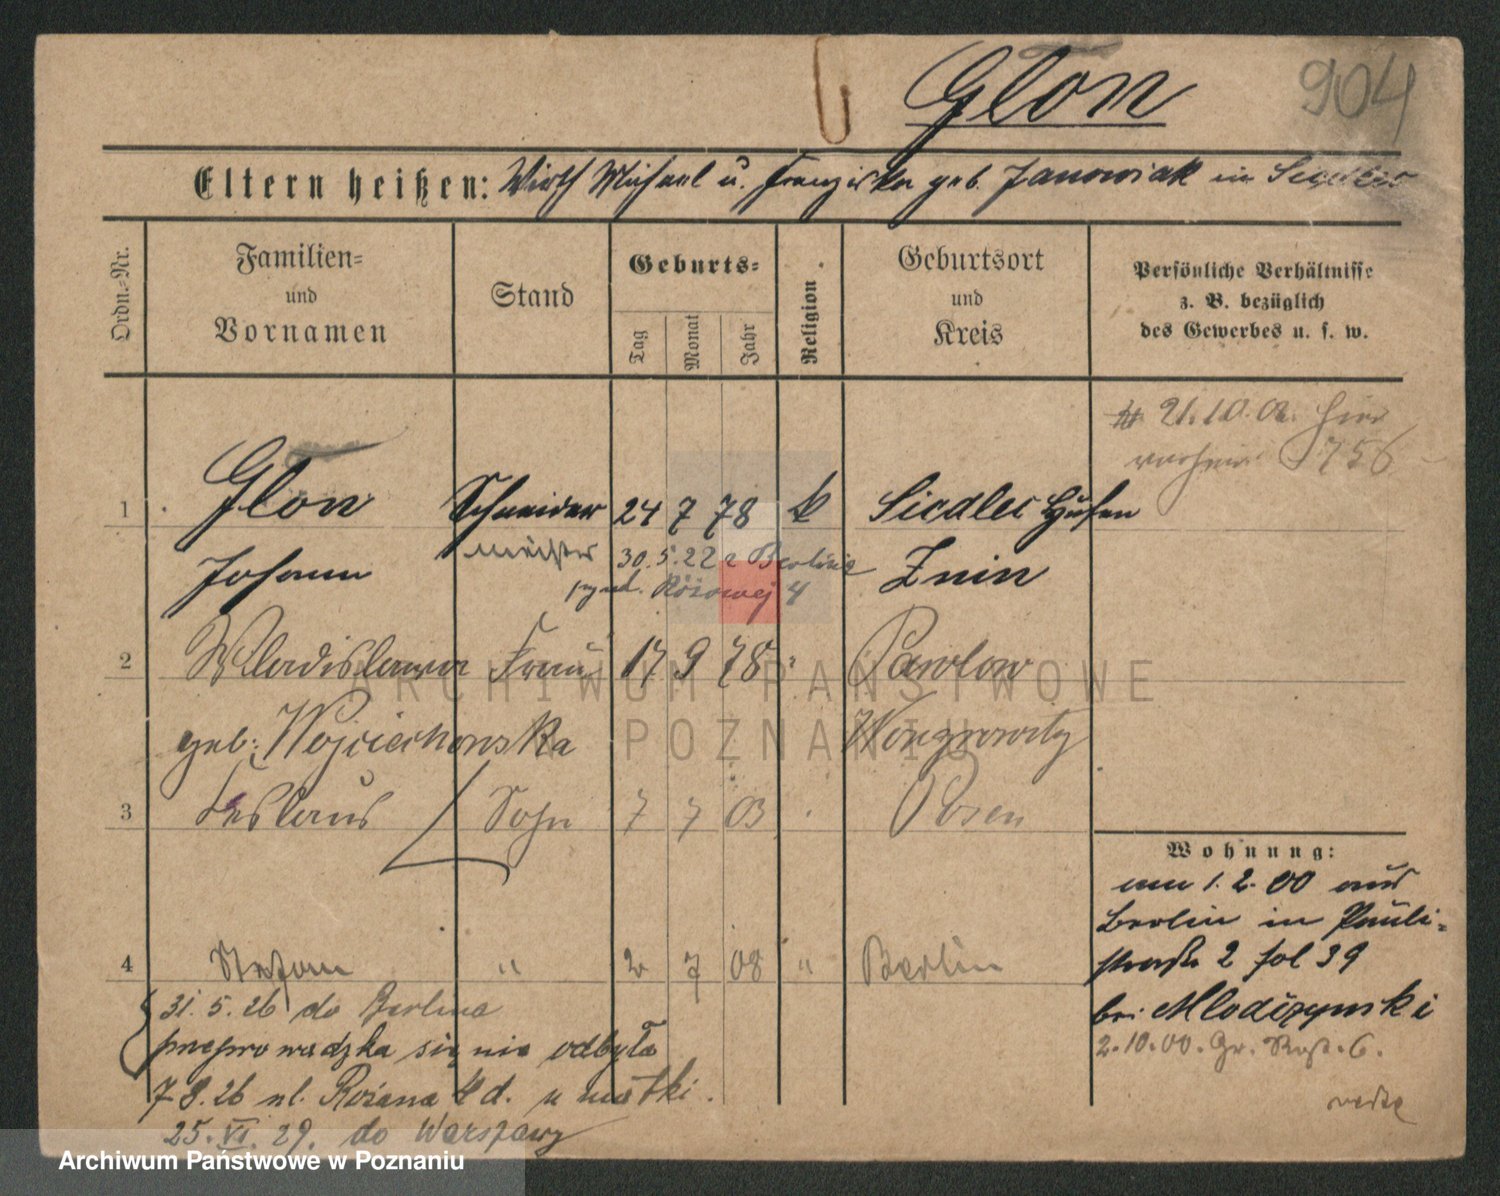 Glon
904
Eltern heißen: Wirth Michael u. Franziska geb. Janowiak in Siedlec
Ordn.-Nr.
Familien- und Vornamen
Stand
Geburts-
Tag
Monat
Jahr
Religion
Geburtsort und Kreis
Persönliche Verhältnisse z. B. bezüglich des Gewerbes u. s. w.
21.10.02. hier
756
1 Glon Schneider 24 7 78 k Siedlec Hufen
meister 30.5.22 z Berlina
Johann Znin
Różowej 4
2 Wladislawa Frau 17 9 78 " Pawlow
geb: Wojciechowska Wongrowitz
3 Ceslaus Sohn 7 7 03 Posen
Wohnung:
am 1.2.00 aus
Berlin in Pauli-
straße 2 fol 39
4 Stefan " 2 7 08 " Berlin
bei Mlodzynski
2.10.00. Gr. 6.
31.5.26 do Berlina
przeprowadzka się nie odbyła
7 8.26 ul. Różana 4 d. u matki.
25.VI.29. do Warszawy
ARCHIWUM PAŃSTWOWE
W POZNANIU
Archiwum Państwowe w Poznaniu